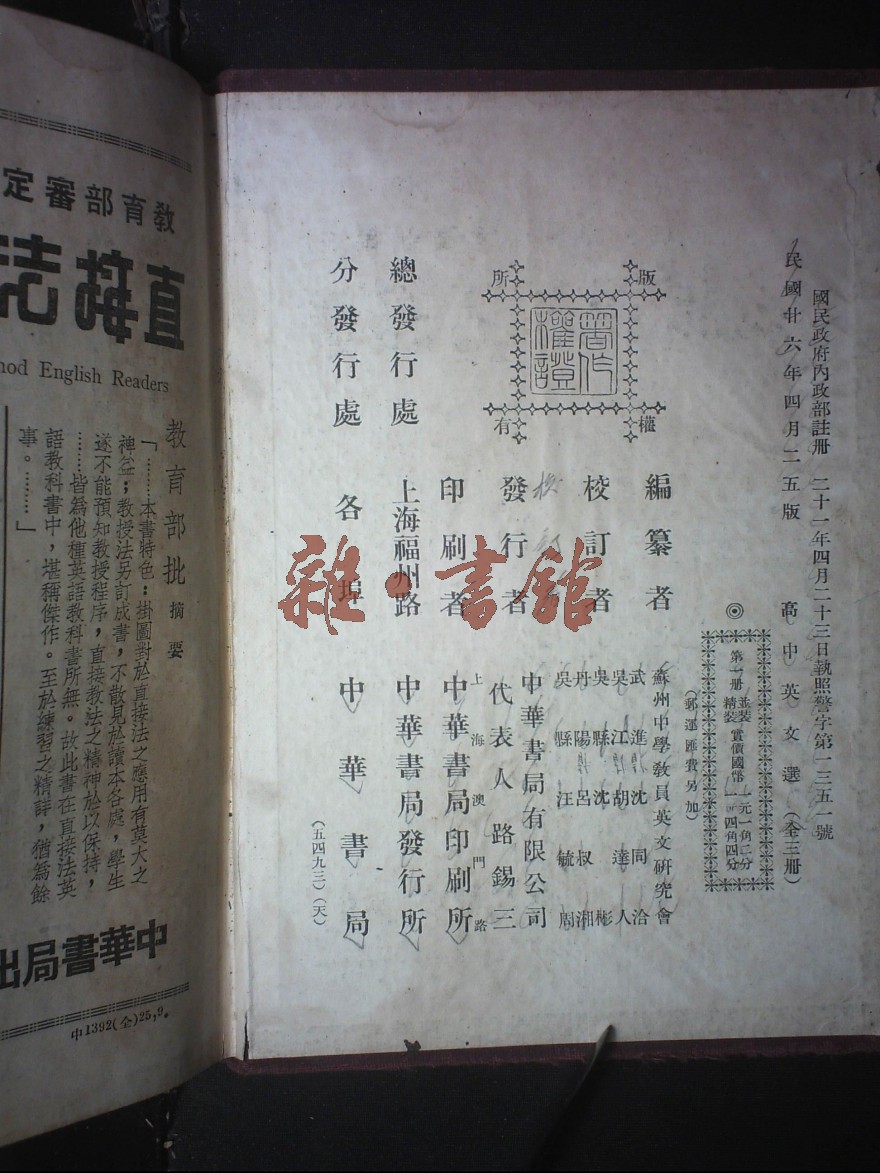 國民政府內政部註册　二十一年四月二十三日執照警字第一三五一號
民國廿六年四月二五版
高中英文選（全三册）
◎
第一册　並裝　精裝　實價國幣　一元一角二分　一元四角四分
（郵運匯費另加）
版權所有
著作權讃
編纂者　蘇州中學教員英文研究會
校訂者　武進沈同洽
吳江胡達人
吳縣沈　彬
丹陽呂叔湘
吳縣汪毓周
發行者　中華書局有限公司
代表人　路錫三
印刷者　上海澳門路
中華書局印刷所
總發行處　上海福州路　中華書局發行所
分發行處　各埠　中華書局
（五四九三）（天）
雜·書館
教育部審定
直接法
hod English Readers
教育部批　摘要
「………本書特色：掛圖對於直接法之應用有莫大之
裨益；教授法另訂成書，不散見於讀本各處，學生
遂不能預知教授程序，直接教法之精神於以保持，
………皆爲他種英語教科書所無。故此書在直接法英
語教科書中，堪稱傑作。至於練習之精詳，猶爲餘
事。………」
中華書局出
中1392(全)25,9。